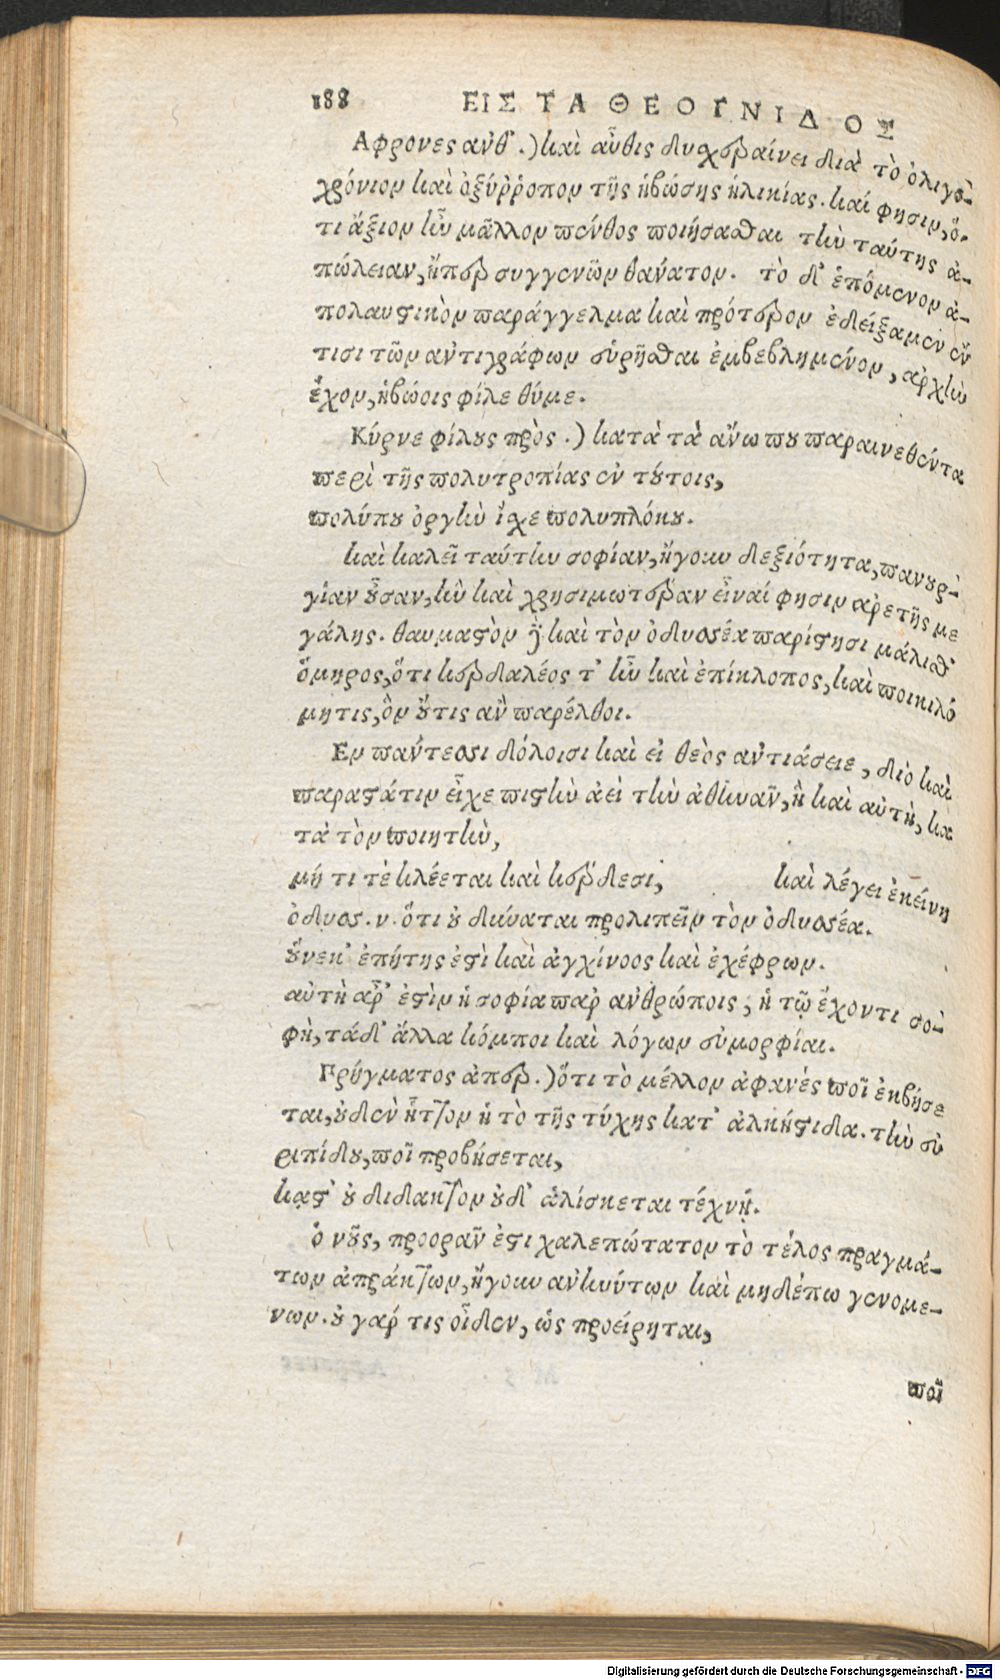 188 ΕΙΣ ΤΑ ΘΕΟΓΝΙΔΟΣ
Αφρονες ανθ᾽.) καὶ αὖθις δυσχεραίνει διὰ τὸ ὀλιγο-
χρόνιον καὶ ὀξύῤῥοπον τῆς ἡβώσης ἡλικίας. καί φησιν, ὅ-
τι ἄξιον ἦν μᾶλλον πένθος ποιήσασθαι τὴν ταύτης ἀ-
πώλειαν, ἤπερ συγγενῶν θανάτον. τὸ δ᾽ ἑπόμενον ἀ-
πολαυστικὸν παράγγελμα καὶ πρότερον ἐδείξαμεν ἔν
τισι τῶν αντιγράφων εὑρῆσθαι ἐμβεβλημένον, αρχὴν
ἔχον, ἡβώοις φίλε θύμε.
Κύρνε φίλους πρὸς.) κατὰ τὰ ἄνω που παραινεθέντα
περὶ τῆς πολυτροπίας ἐν τούτοις,
πολύπου ὀργὴν ἴσχε πολυπλόκου.
καὶ καλεῖ ταύτην σοφίαν, ἤγουν δεξιότητα, πανουρ-
γίαν οὖσαν, ἣν καὶ χρησιμωτέραν εἶναί φησιν αρετῆς με
γάλης. θαυμαστὸν γὰρ καὶ τὸν ὀδυσσέα παρίστησι μάλισθ᾽
ὅμηρος, ὅτι κερδαλέος τ᾽ ἦν καὶ ἐπίκλοπος, καὶ ποικιλό
μητις, ὃν οὔτις ἂν παρέλθοι.
Εν πάντεσσι δόλοισι καὶ εἰ θεὸς αντιάσειε, διὸ καὶ
παραστάτιν εἶχε πιστὴν ἀεὶ τὴν ἀθηνᾶν, ἣ καὶ αὐτὴ, κα
τὰ τὸν ποιητὴν,
μή τι τὲ κλέεται καὶ κέρδεσι, καὶ λέγει ἐκείνη
ὀδυσς. ν. ὅτι οὐ δύναται προλιπεῖν τὸν ὀδυσσέα.
οὕνεκ᾽ ἐπήτης ἐστὶ καὶ ἀγχίνοος καὶ ἐχέφρων.
αὐτὴ ἆρ᾽ ἐστὶν ἡ σοφία παρ ανθρώποις, ἡ τῷ ἔχοντι σο-
φὴ, τάδ᾽ ἄλλα κόμποι καὶ λόγων εὐμορφίαι.
Πρήγματος ἀπερ.) ὅτι τὸ μέλλον ἀφανὲς ποῖ ἐκβήσε
ται, οὐδὲν ἧττον ἢ τὸ τῆς τύχης κατ᾽ ἀλκήστιδα. τὴν εὐ
ριπίδου, ποῖ προβήσεται,
κᾄστ᾽ οὐ διδακτὸν οὐδ᾽ ἁλίσκεται τέχνῃ.
ὁ νοῦς, προορᾶν ἐστι χαλεπώτατον τὸ τέλος πραγμά-
των ἀπράκτων, ἤγουν ανηνύτων καὶ μηδέπω γενομε-
νων. οὐ γάρ τις οἶδεν, ὡς προείρηται,
ποῖ
Digitalisierung gefördert durch die Deutsche Forschungsgemeinschaft - DFG